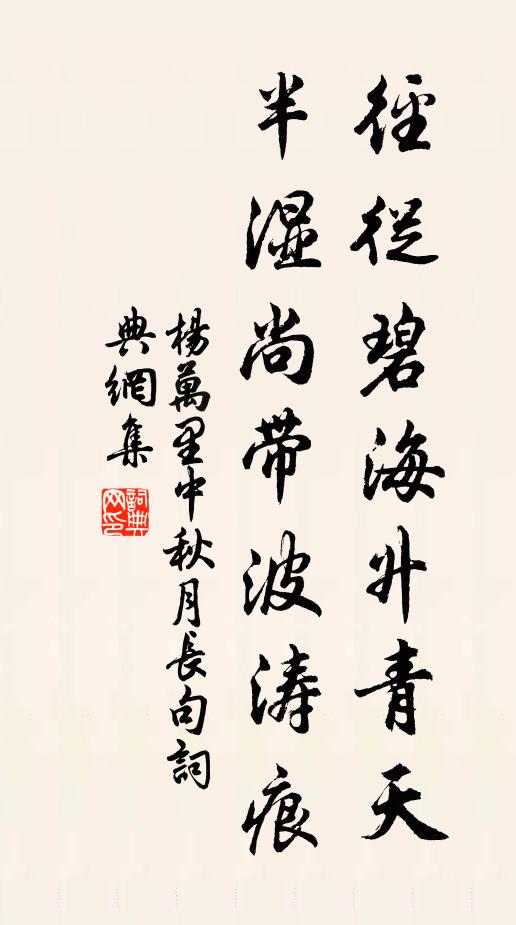 徑從碧海升青天
半濕尚帶波濤痕
楊萬里中秋月長句詞
典網集
詞典網印